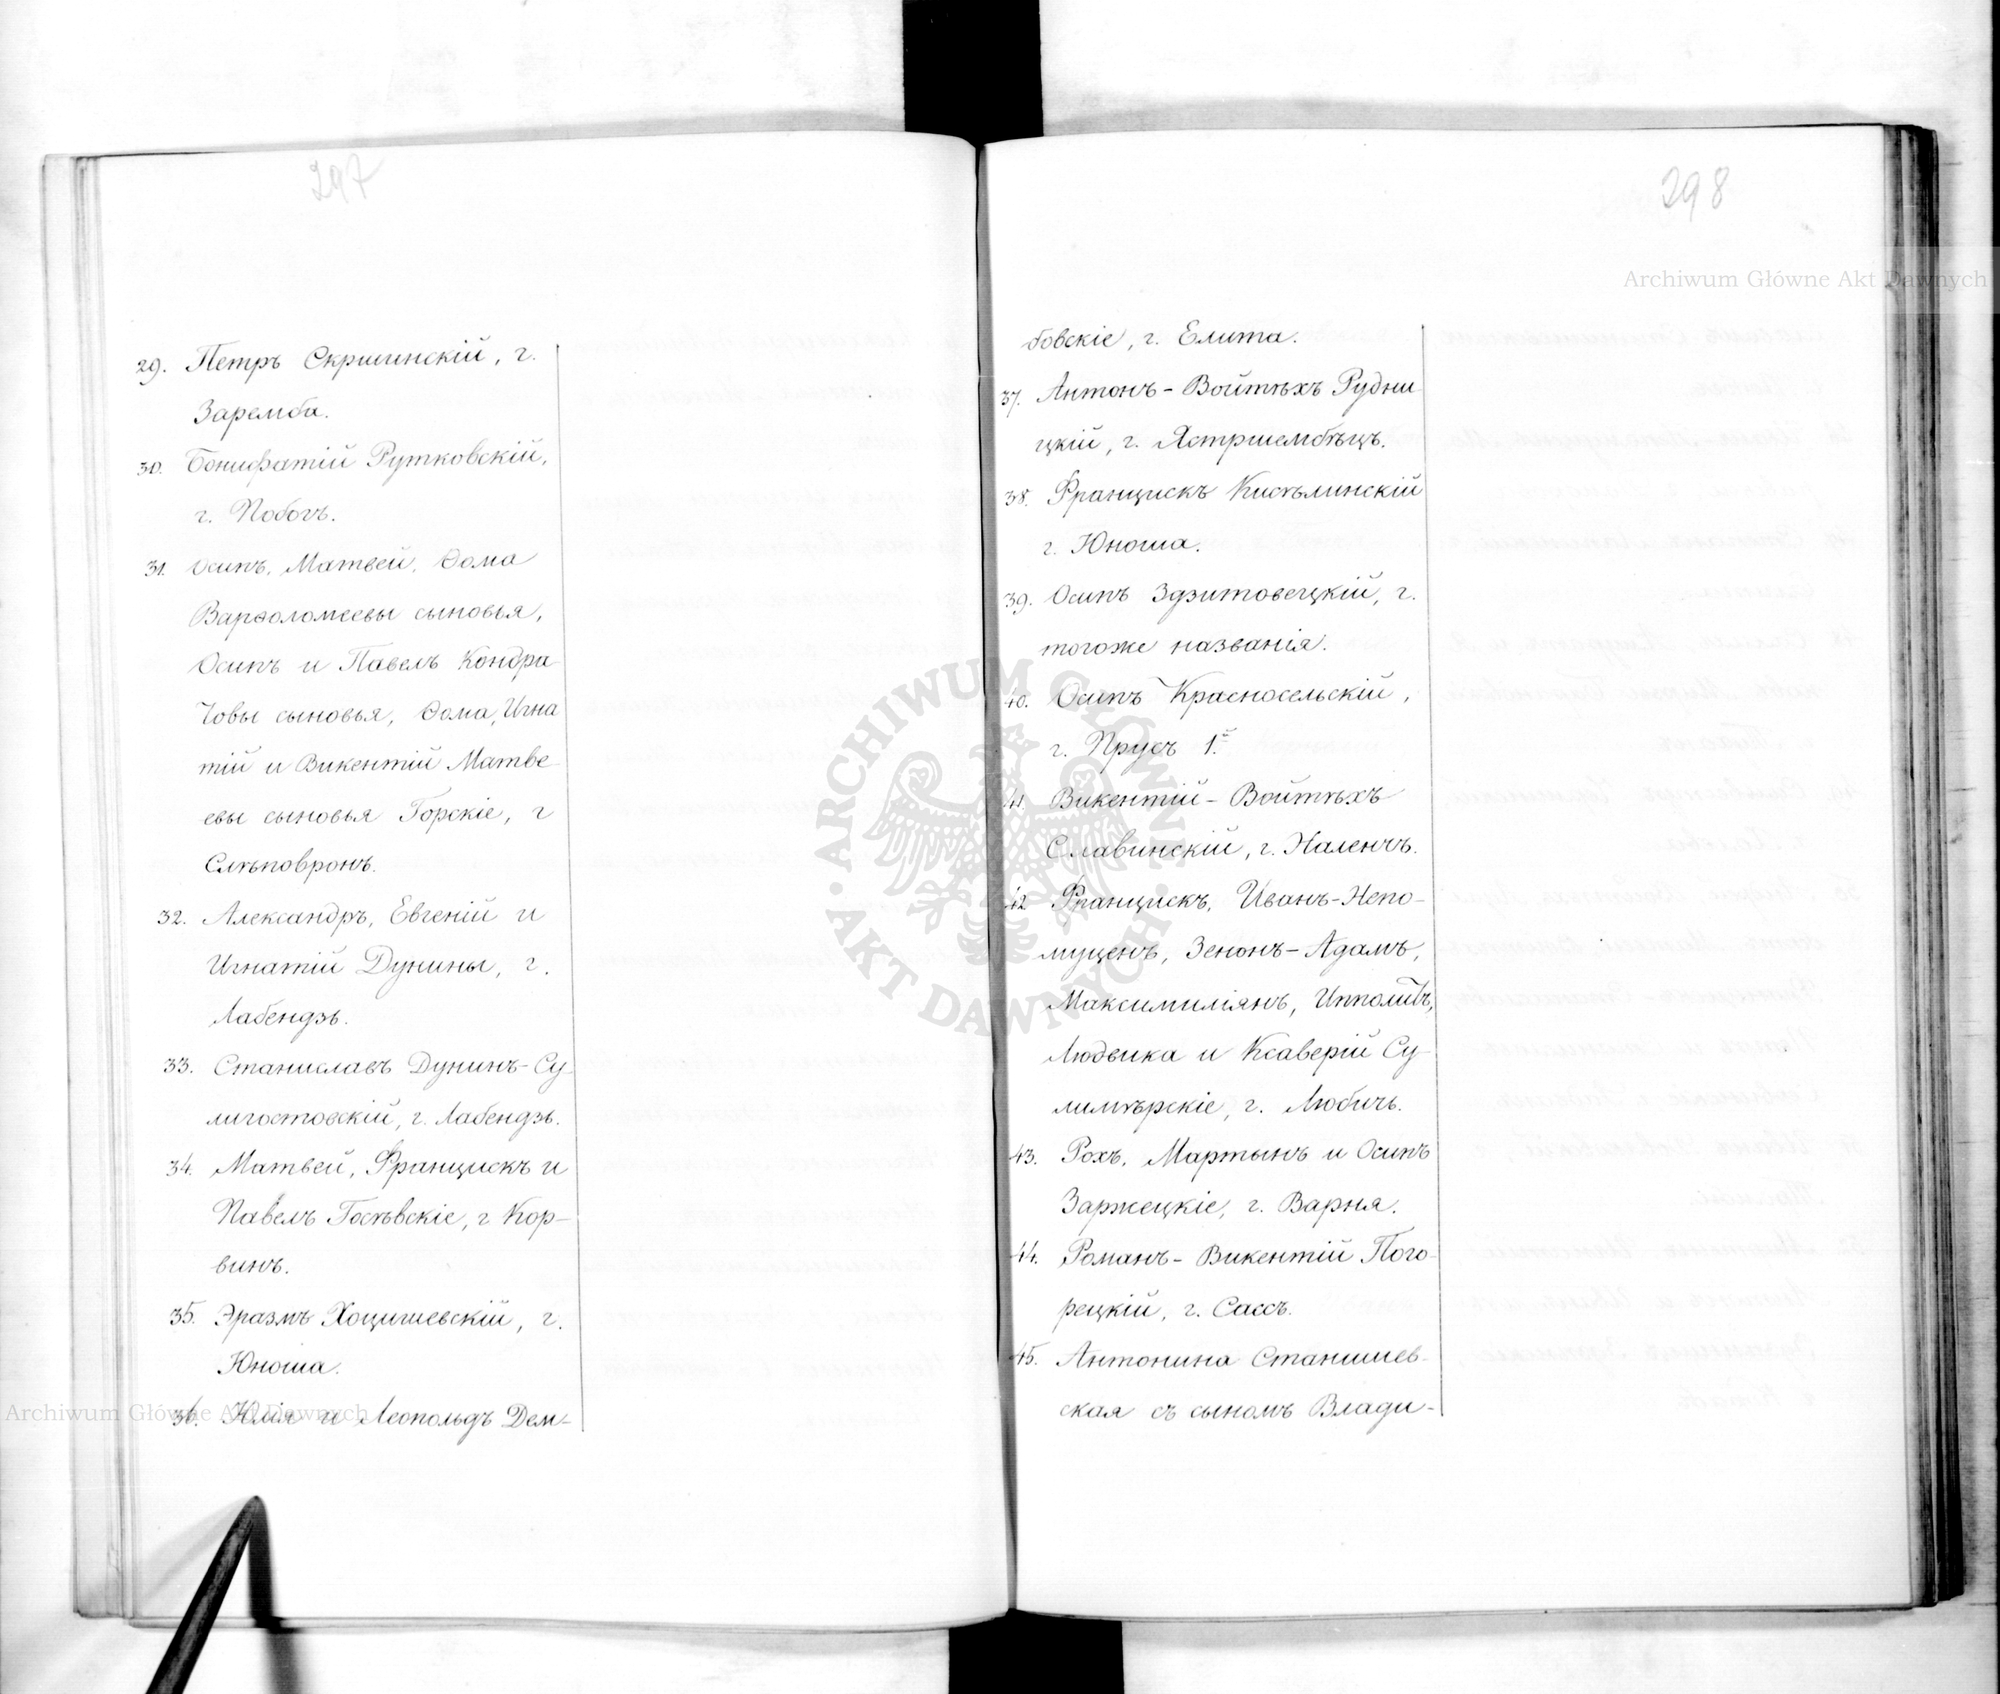 297
29. Петръ Скршинскій, г.
Заремба.
30. Бонифатій Рутковскій,
г. Побогъ.
31. Осипъ, Матвей, Ѳома
Варѳоломеевы сыновья,
Осипъ и Павелъ Кондра-
товы сыновья, Ѳома, Игна
тій и Викентій Матве
евы сыновья Горскіе, г
Слѣповронъ.
32. Александръ, Евгеній и
Игнатій Дунины, г.
Лабендзь.
33. Станиславъ Дунинъ-Су-
лигостовскій, г. Лабендзь.
34. Матвей, Францискъ и
Павелъ Госѣвскіе, г Кор-
винъ.
35. Эразмъ Хоцишевскій, г.
Юноша.
36. Юлія и Леопольдъ Дем-
298
бовскіе, г. Елита.
37. Антонъ-Войтѣхъ Рудни-
цкій, г. Ястршембѣцъ.
38. Францискъ Кисѣлинскій
г. Юноша.
39. Осипъ Здзитовецкій, г.
тогоже названія.
40. Осипъ Красносельскій,
г. Прусъ 1.й
41. Викентій-Войтѣхъ
Славинскій, г. Наленчъ.
42 Францискъ, Иванъ-Непо-
муценъ, Зенонъ-Адамъ,
Максимиліянъ, Ипполитъ,
Людвика и Ксаверій Су-
лимѣрскіе, г. Любичъ.
43. Рохъ, Мартынъ и Осипъ
Заржецкіе, г. Варня.
44. Романъ-Викентій Пого-
рецкій, г. Сассъ.
45. Антонина Станишев-
ская съ сыномъ Влади-
Archiwum Główne Akt Dawnych
ARCHIWUM GŁÓWNE · AKT DAWNYCH ·
Archiwum Główne Akt Dawnych